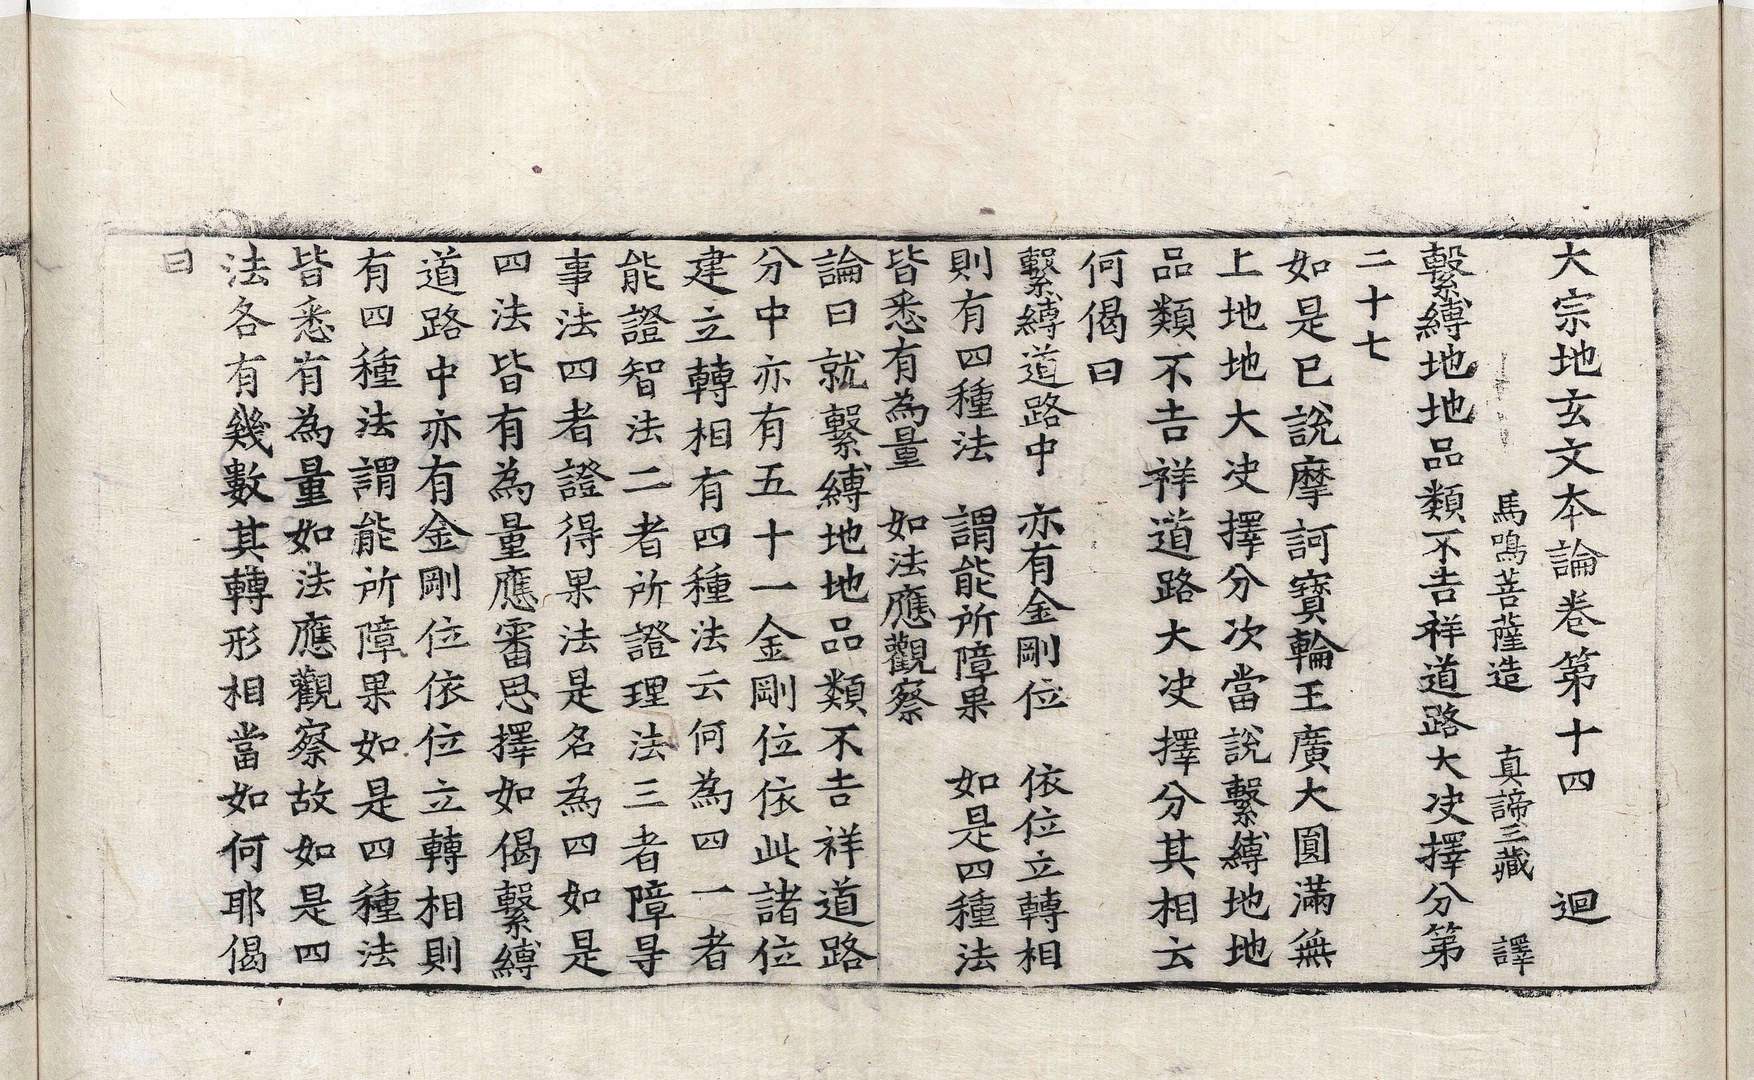 大宗地玄文本論卷第十四　迴
馬鳴菩薩造　真諦三藏　譯
繫縛地地品類不吉祥道路大决擇分第
二十七
如是已說摩訶寶輪王廣大圓滿無
上地地大决擇分次當說繫縛地地
品類不吉祥道路大决擇分其相云
何偈曰
繫縛道路中　亦有金剛位　依位立轉相
則有四種法　謂能所障果　如是四種法
皆悉有為量　如法應觀察
論曰就繫縛地地品類不吉祥道路
分中亦有五十一金剛位依此諸位
建立轉相有四種法云何為四一者
能證智法二者所證理法三者障㝵
事法四者證得果法是名為四如是
四法皆有為量應審思擇如偈繫縛
道路中亦有金剛位依位立轉相則
有四種法謂能所障果如是四種法
皆悉有為量如法應觀察故如是四
法各有幾數其轉形相當如何耶偈
曰